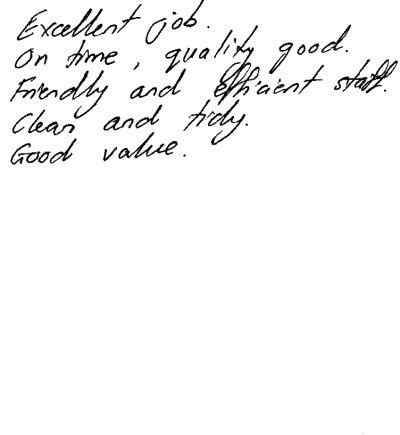 Excellent job.
On time, quality good.
Friendly and efficient staff.
Clean and tidy.
Good value.